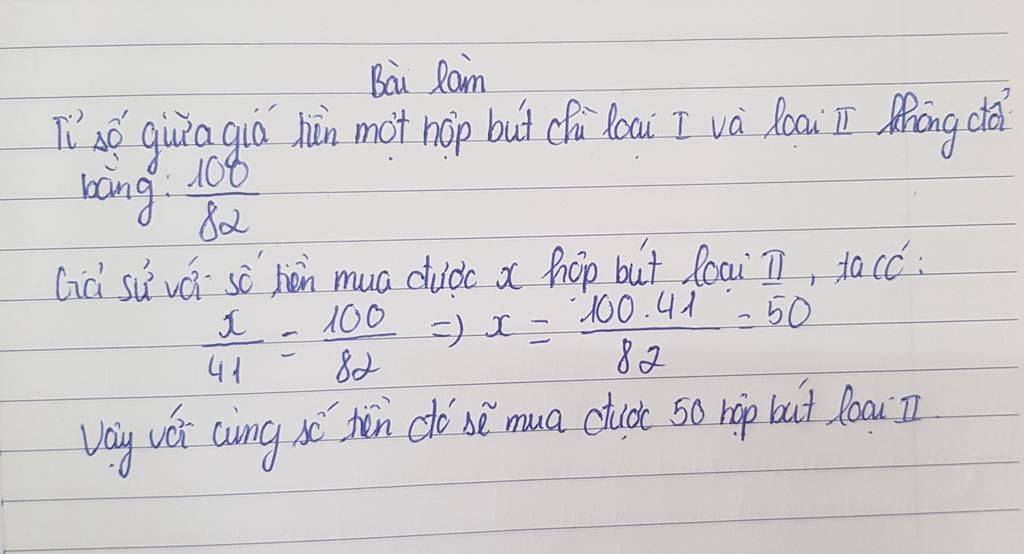 Bài làm
Tỉ số giữa giá tiền một hộp bút chì loại I và loại II không đổi
bằng: 100/82
Giả sử với số tiền mua được x hộp bút loại II, ta có:
x/41 = 100/82 => x = 100.41/82 = 50
Vậy với cùng số tiền đó sẽ mua được 50 hộp bút loại II.